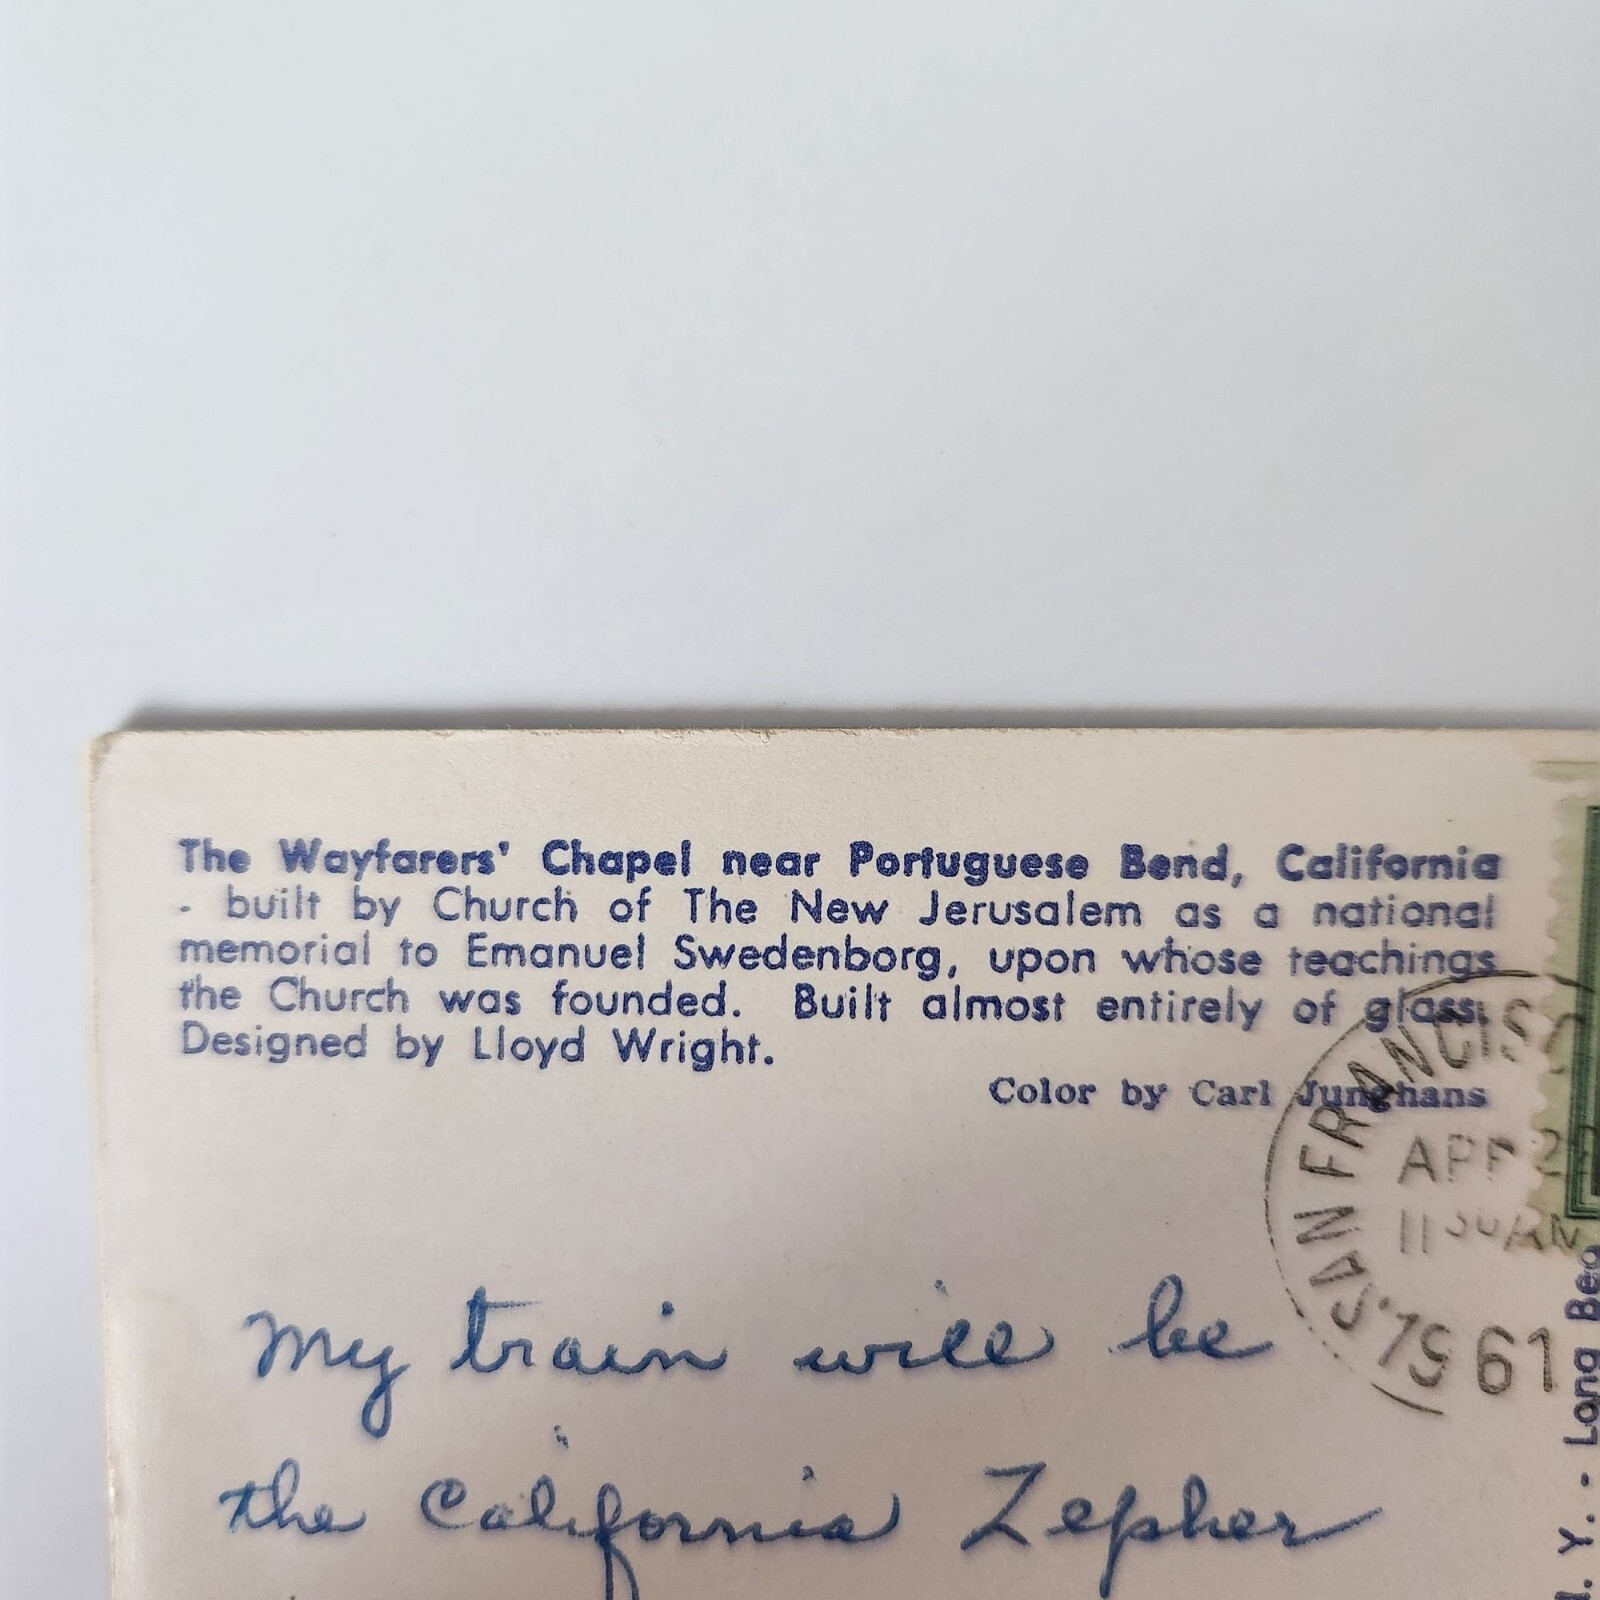 The Wayfarers' Chapel near Portuguese Bend, California
- built by Church of The New Jerusalem as a national
memorial to Emanuel Swedenborg, upon whose teachings
the Church was founded. Built almost entirely of glass.
Designed by Lloyd Wright.
Color by Carl Junghans
SAN FRANCISC
APR 22
11 30 AM
1961
My train will be
the California Zepher
Y. - Long Bea